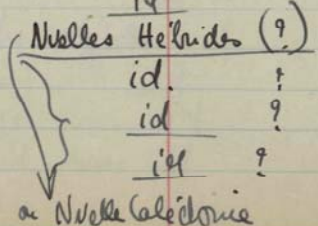 id
Nvelles Hébrides (?)
id. ?
id ?
id ?
ou Nvelle Calédonie